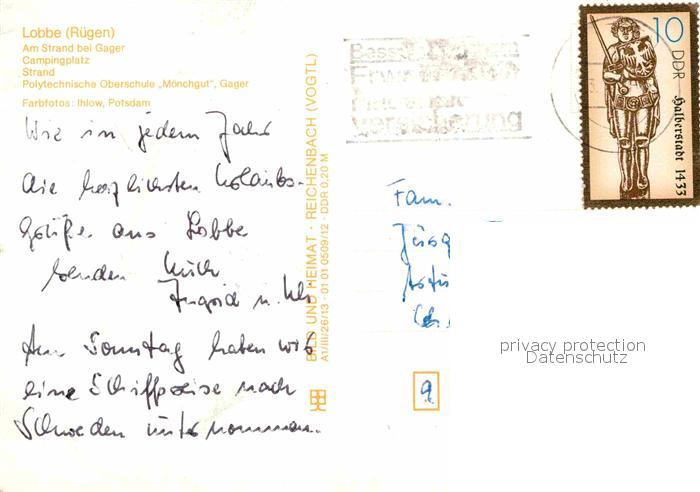 Lobbe (Rügen)
Am Strand bei Gager
Campingplatz
Strand
Polytechnische Oberschule „Mönchgut", Gager
Farbfotos: Ihlow, Potsdam
Wie in jedem Jahr
die herzlichsten Urlaubs-
grüße aus Lobbe
senden Euch
Ingrid u.
Am Sonntag haben wir
eine Schiffsreise nach
Schweden unternommen.
BILD UND HEIMAT · REICHENBACH (VOGTL)
A1/III/26/13 · 01 01 0509/12 · DDR 0,20 M
versicherung
10
DDR
Halberstadt 1433
Fam.
9
privacy protection
Datenschutz